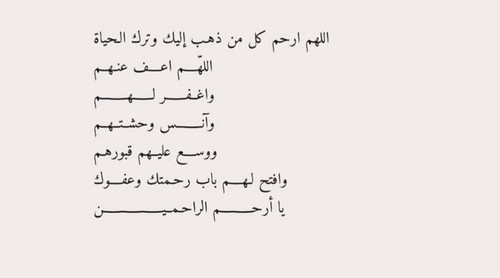 اللهم ارحم كل من ذهب إليك وترك الحياة
اللهّم اعف عنهم
واغفر لهم
وآنس وحشتهم
ووسع عليهم قبورهم
وافتح لهم باب رحمتك وعفوك
يا أرحم الراحمين